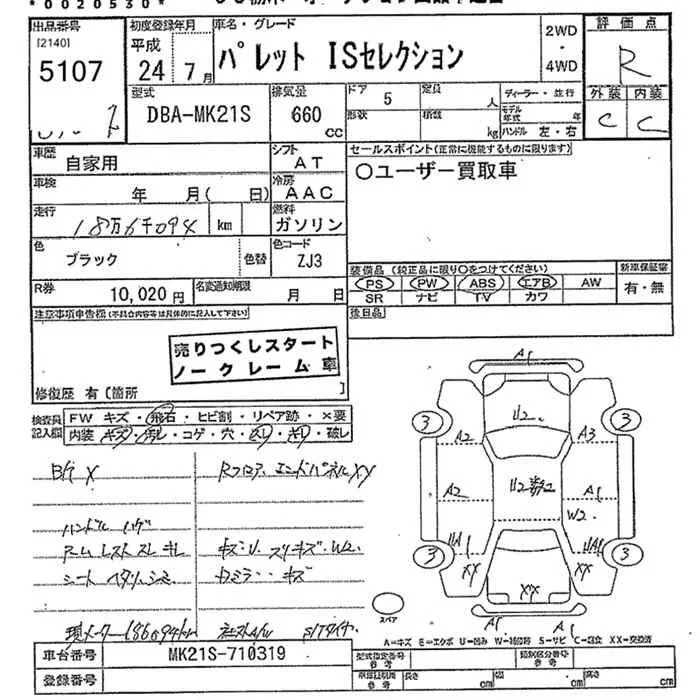 *0020530*
出品番号 [2140] 5107
初度登録年月 平成 24年 7月
車名・グレード パレット ISセレクション
2WD・4WD
評価点 R
外装 C 内装 C
型式 DBA-MK21S
排気量 660 cc
ドア 5 定員 人
形状 積載 kg
ディーラー・並行
モデル年式 年
ハンドル 左・右
車歴 自家用
シフト AT
セールスポイント(正常に機能するものに限ります)
〇ユーザー買取車
車検 年 月( 日)
冷房 AAC
走行 18万6千094 km
燃料 ガソリン
色 ブラック 色替
色コード ZJ3
装備品(純正品に限り〇をつけてください)
PS PW ABS エアB AW
SR ナビ TV カワ
新車保証書 有・無
R券 10,020円
名変通知期限 月 日
後日品
注意事項申告欄(不具合内容等は具体的に記入して下さい)
売りつくしスタート
ノークレーム車
修復歴 有〔箇所 〕
検査員記入欄
FW キズ・飛石・ヒビ割・リペア跡・×要
内装 キズ・汚レ・コゲ・穴・スレ・キレ・破レ
BG X
Rフロア エンドパネルXX
ハンドル ハゲ
ルームレストスレキレ
キズ・U スリキズ・W2
シート ヘタリ シミ
キズ
現メーター186094km
A1
3 3
U2
A2 A3
A2 U2 A1
W2
UA1 UA1
3 3
XX XX XX
A1 A1
スペア
A=キズ E=エクボ U=凹み W=補修跡 S=サビ C=腐食 XX=交換済
車台番号 MK21S-710319
型式指定番号 参考
類別区分番号 参考
登録番号
車庫証明用 参考 長さ cm 幅 cm 高さ cm